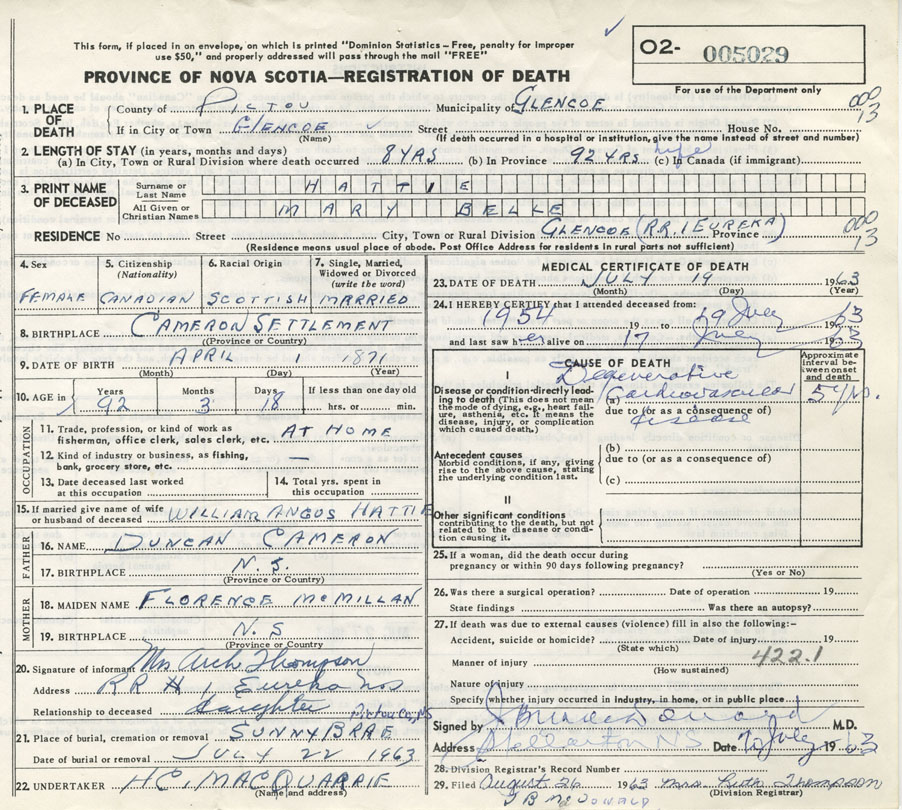 This form, if placed in an envelope, on which is printed "Dominion Statistics – Free, penalty for improper
use $50," and properly addressed will pass through the mail "FREE"
O2- 005029
For use of the Department only
PROVINCE OF NOVA SCOTIA—REGISTRATION OF DEATH
1. PLACE OF DEATH
County of PICTOU Municipality of GLENCOE
000
13
If in City or Town GLENCOE Street House No.
(Name) (If death occurred in a hospital or institution, give the name instead of street and number)
2. LENGTH OF STAY (in years, months and days)
(a) In City, Town or Rural Division where death occurred 8 YRS (b) In Province 92 YRS life (c) In Canada (if immigrant)
3. PRINT NAME OF DECEASED
Surname or Last Name HATTIE
All Given or Christian Names MARY BELLE
RESIDENCE No Street City, Town or Rural Division GLENCOE (R.R. 1 EUREKA) Province
000
13
(Residence means usual place of abode. Post Office Address for residents in rural parts not sufficient)
4. Sex
FEMALE
5. Citizenship (Nationality)
CANADIAN
6. Racial Origin
SCOTTISH
7. Single, Married, Widowed or Divorced (write the word)
MARRIED
8. BIRTHPLACE CAMERON SETTLEMENT
(Province or Country)
9. DATE OF BIRTH APRIL 1 1871
(Month) (Day) (Year)
10. AGE in Years 92 Months 3 Days 18 If less than one day old
hrs. or min.
OCCUPATION
11. Trade, profession, or kind of work as
fisherman, office clerk, sales clerk, etc. AT HOME
12. Kind of industry or business, as fishing,
bank, grocery store, etc. —
13. Date deceased last worked
at this occupation
14. Total yrs. spent in
this occupation
15. If married give name of wife
or husband of deceased WILLIAM ANGUS HATTIE
FATHER
16. NAME DUNCAN CAMERON
17. BIRTHPLACE N.S.
(Province or Country)
MOTHER
18. MAIDEN NAME FLORENCE McMILLAN
19. BIRTHPLACE N.S
(Province or Country)
20. Signature of informant Mrs Arch Thompson
Address RR # 1 Eureka NS
Pictou Co, NS
Relationship to deceased daughter
21. Place of burial, cremation or removal SUNNYBRAE
Date of burial or removal JULY 22 1963
22. UNDERTAKER H.C. MACQUARRIE
(Name and address)
MEDICAL CERTIFICATE OF DEATH
23. DATE OF DEATH JULY 19 1963
(Month) (Day) (Year)
24. I HEREBY CERTIFY that I attended deceased from:
1954 19 to 19 July 1963
and last saw her alive on 17 July 1963
CAUSE OF DEATH
Approximate interval between onset and death
I
Disease or condition directly leading to death (This does not mean the mode of dying, e.g., heart failure, asthenia, etc. It means the disease, injury, or complication which caused death.)
(a) Degenerative Cardiovascular disease 5 yrs.
due to (or as a consequence of)
Antecedent causes
Morbid conditions, if any, giving rise to the above cause, stating the underlying condition last.
(b)
due to (or as a consequence of)
(c)
II
Other significant conditions
contributing to the death, but not related to the disease or condition causing it.
25. If a woman, did the death occur during
pregnancy or within 90 days following pregnancy?
(Yes or No)
26. Was there a surgical operation? Date of operation 19
State findings Was there an autopsy?
27. If death was due to external causes (violence) fill in also the following:–
Accident, suicide or homicide? Date of injury 19
(State which)
Manner of injury 422.1
(How sustained)
Nature of injury
Specify whether injury occurred in industry, in home, or in public place
Signed by M.D.
Address Stellarton NS Date 20 July 1963
28. Division Registrar's Record Number
29. Filed August 26 1963 Mrs Ruth Thompson
(Division Registrar)
McDONALD